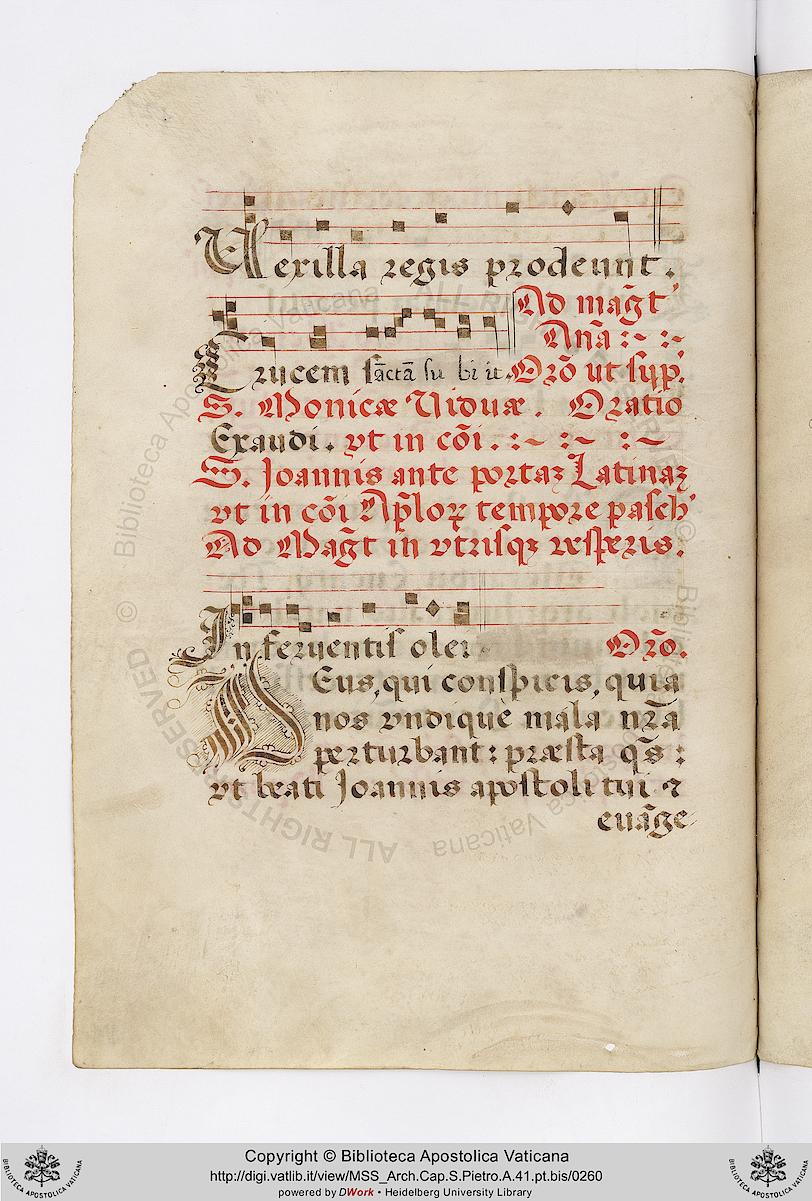 Vexilla regis prodeunt.
Ad mag̃t
Añа :~ :~
Crucem sāctā su bi it. Orõ ut sup̱.
S. Monicæ Viduæ. Oratio
Exaudi. vt in cõi. :~ :~ :~
S. Joannis ante portaꝫ Latinaꝫ
vt in cõi Ap̃loꝝ tempore pasch'
Ad Mag̃t in vtrisqꝫ vesperis.
In feruentis olei Orõ.
Deus, qui conspicis, quia
nos vndiquè mala nr̃a
perturbant: præsta qs̃:
vt beati Joannis apostoli tui ⁊
euãge
Copyright © Biblioteca Apostolica Vaticana
http://digi.vatlib.it/view/MSS_Arch.Cap.S.Pietro.A.41.pt.bis/0260
powered by DWork • Heidelberg University Library
BIBLIOTECA APOSTOLICA VATICANA
BIBLIOTECA APOSTOLICA VATICANA
© Biblioteca Apostolica Vaticana ALL RIGHTS RESERVED